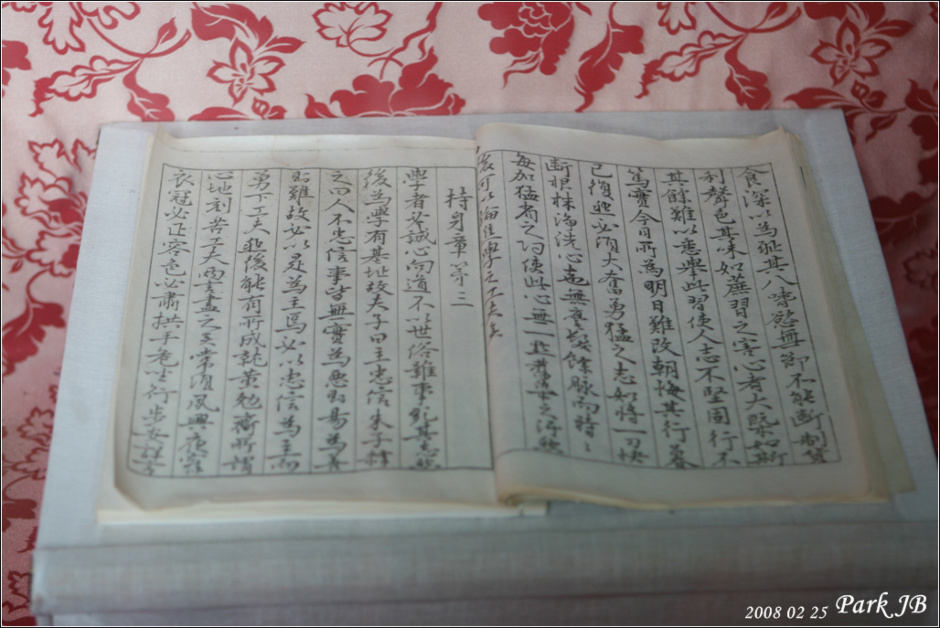 食深以為恥其八嗜慾無節不能斷制貨
利聲色其味如蔗習之害心者大槩如斯
其餘難以悉擧此習使人志不堅固行不
篤實今日所為明日難改朝悔其行暮
已復然必須大奮勇猛之志如將一刀快
斷根株淨洗心地無毫髮餘脉而時〻
每加猛省之功使此心無一點舊染之汚然
後可以論進學之工夫矣
持身章第三
學者必誠心向道不以世俗雜事亂其志然
後為學有基址故夫子曰主忠信朱子釋
之曰人不忠信事皆無實為惡則易為善
則難故必以是為主焉必以忠信為主而
勇下工夫然後能有所成就黃勉齋所謂
心地刻苦工夫兩言盡之矣常須夙興夜寐
衣冠必正容色必肅拱手危坐行步安詳
2008 02 25 Park JB